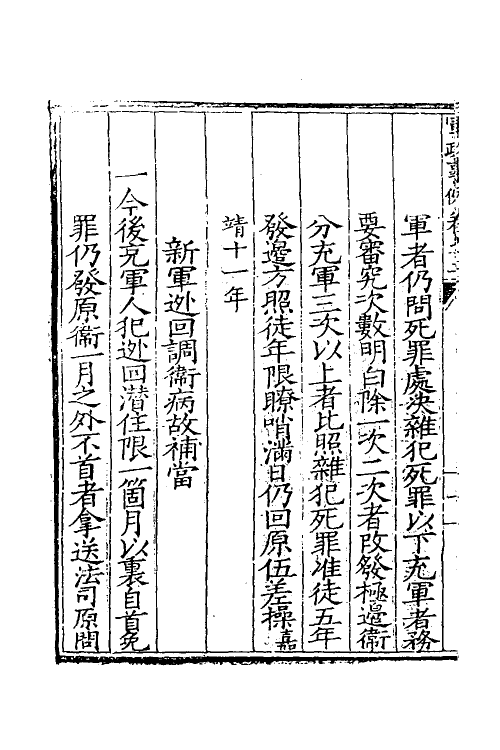 軍者仍問死罪處決雜犯死罪以下充軍者務
要審究次數明白除一次二次者改發極邊衞
分充軍三次以上者比照雜犯死罪准徒五年
發邊方照徒年限瞭哨滿日仍回原伍差操嘉
靖十一年
新軍迯回調衞病故補當
一今後充軍人犯迯回潜住限一箇月以裏自首免
罪仍發原衞一月之外不首者拿送法司原問